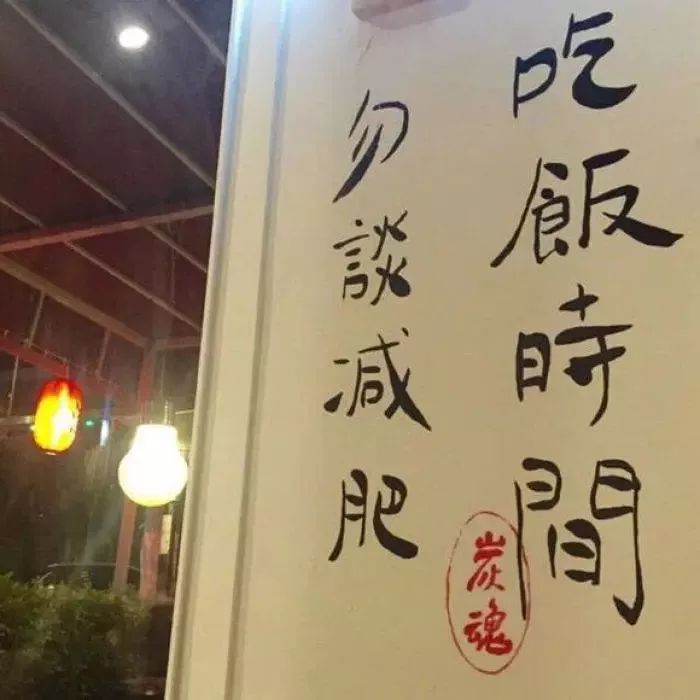 吃飯時間
勿談减肥
炭魂